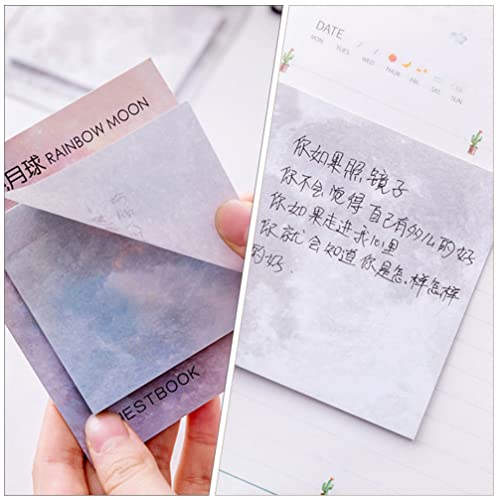 月球 RAINBOW MOON
ESTBOOK
DATE
MON TUES WED THUR FRI SAT SUN
你如果照镜子
你不会觉得自己有多么的好
你如果走进我心里
你就会知道你是怎样怎样
的好.